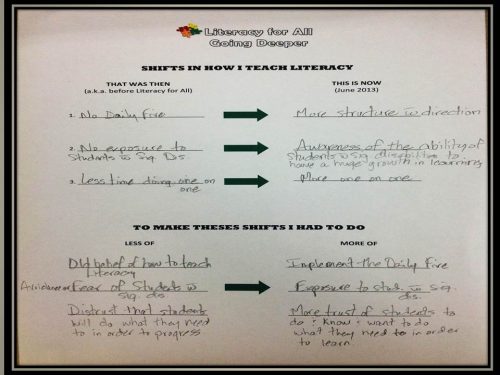 Literacy for All
Going Deeper
SHIFTS IN HOW I TEACH LITERACY
THAT WAS THEN
(a.k.a. before Literacy for All)
THIS IS NOW
(June 2013)
1. No Daily Five
More structure w direction
2. No exposure to
Students w Sig. Dis
Awareness of the ability of
students w sig disabilities to
have a huge growth in learning
3. Less time doing one on
one
More one on one
TO MAKE THESES SHIFTS I HAD TO DO
LESS OF
MORE OF
Old belief of how to teach
Literacy
Implement the Daily Five
Avoidance or Fear of Students w
sig. dis.
Exposure to stud. w sig.
dis.
Distrust that students
will do what they need
to in order to progress
More trust of students to
do : know : want to do
what they need to in order
to learn